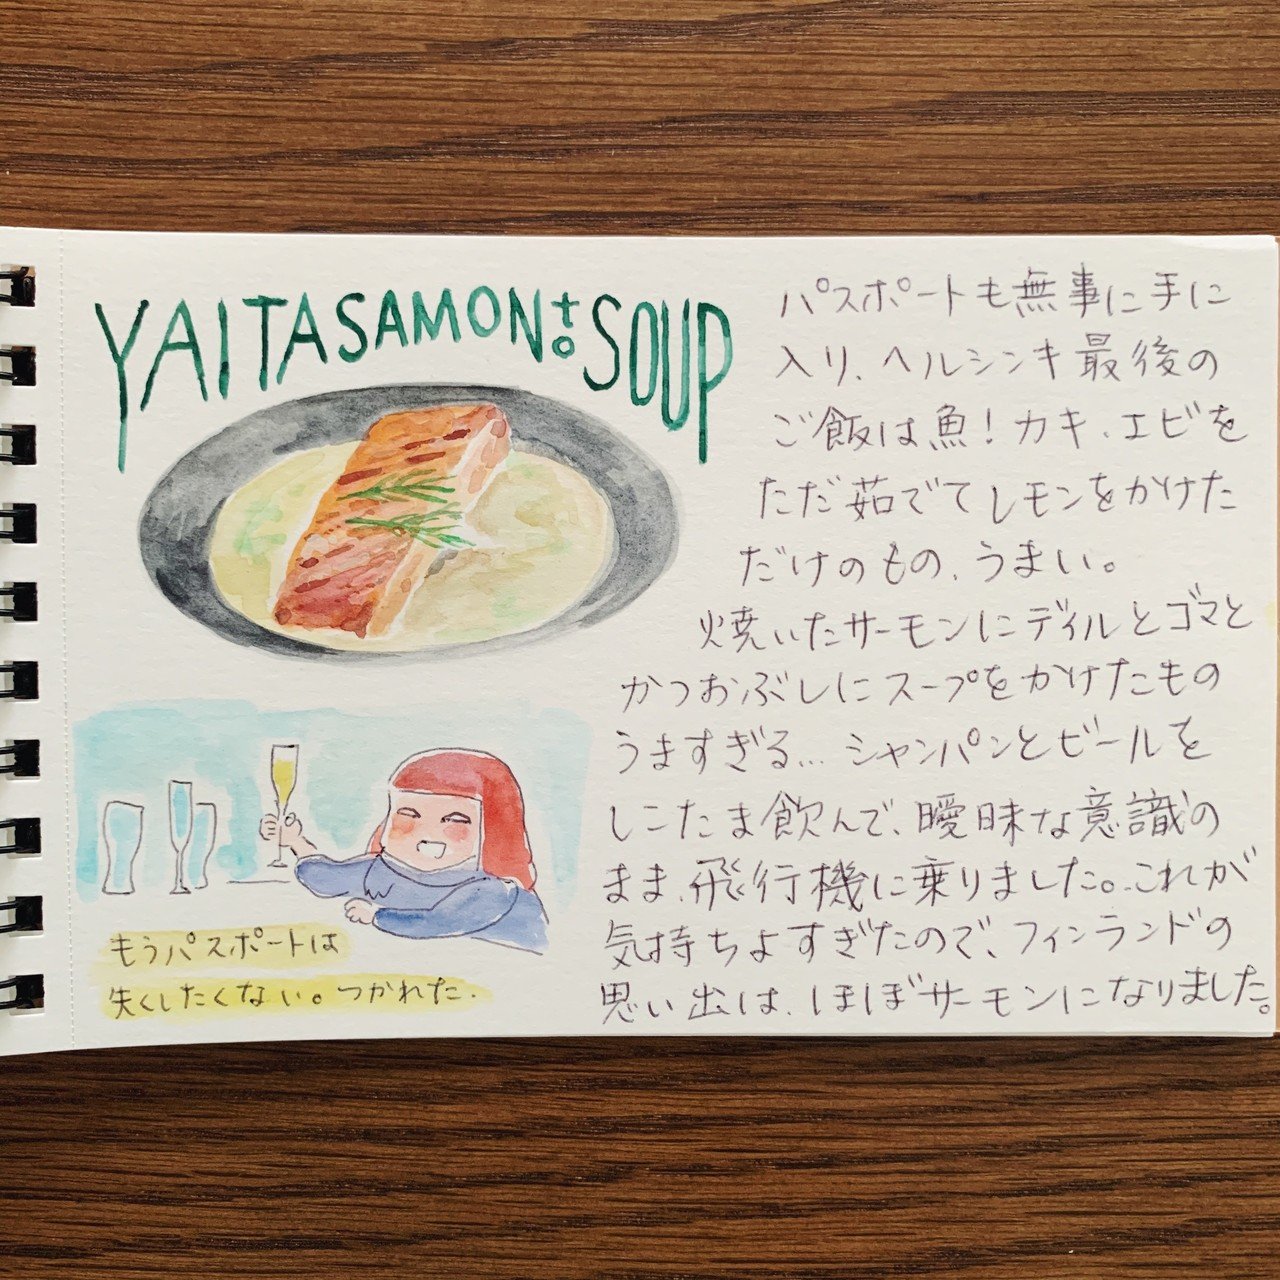 YAITASAMON to SOUP
パスポートも無事に手に
入り、ヘルシンキ最後の
ご飯は魚!カキ、エビを
ただ茹でてレモンをかけた
だけのもの、うまい。
焼いたサーモンにディルとゴマと
かつおぶしにスープをかけたもの
うますぎる… シャンパンとビールを
しこたま飲んで、曖昧な意識の
まま、飛行機に乗りました。これが
気持ちよすぎたので、フィンランドの
思い出は、ほぼサーモンになりました。
もうパスポートは
失くしたくない。つかれた.